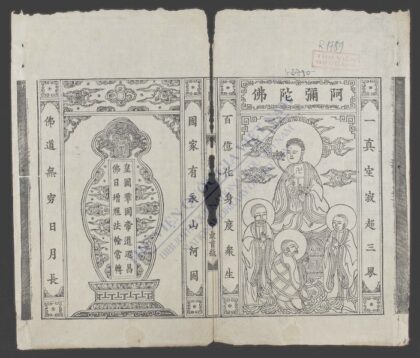 阿彌陀佛
一真空寂超三界
百億化身度衆生
國家有永山河固
皇圖鞏固帝道遐昌
佛日增輝法輪常轉
佛道無穷日月長